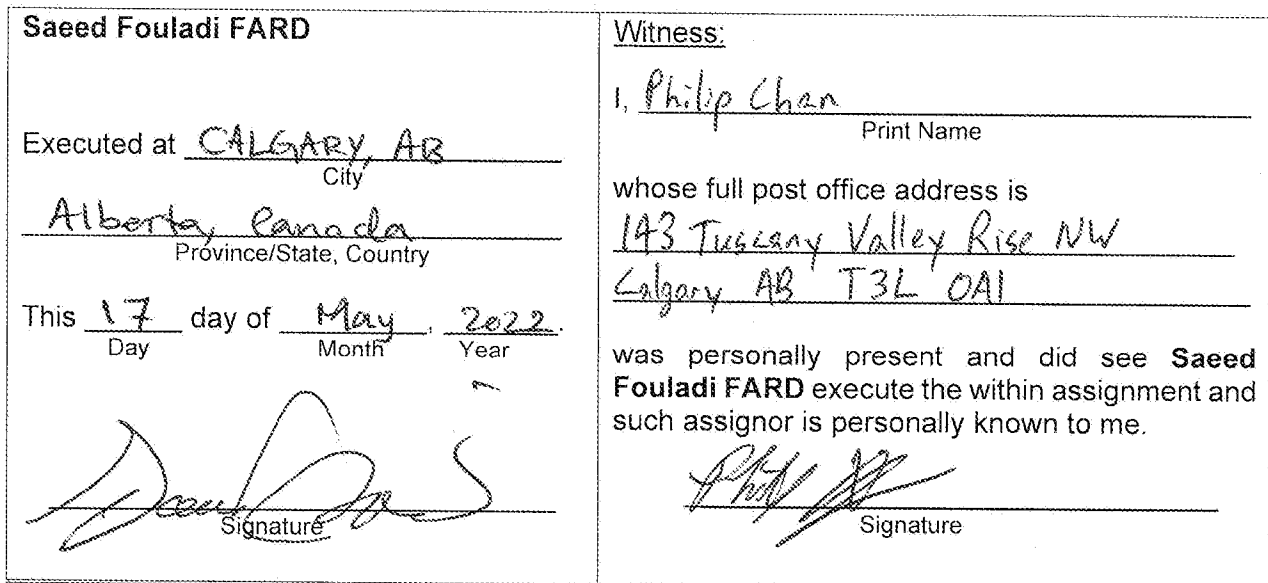 Saeed Fouladi FARD
Executed at CALGARY, AB
City
Alberta, Canada
Province/State, Country
This 17 day of May, 2022.
Day Month Year
Signature
Witness:
I, Philip Chan
Print Name
whose full post office address is
143 Tuscany Valley Rise NW
Calgary AB T3L 0A1
was personally present and did see Saeed
Fouladi FARD execute the within assignment and
such assignor is personally known to me.
Signature